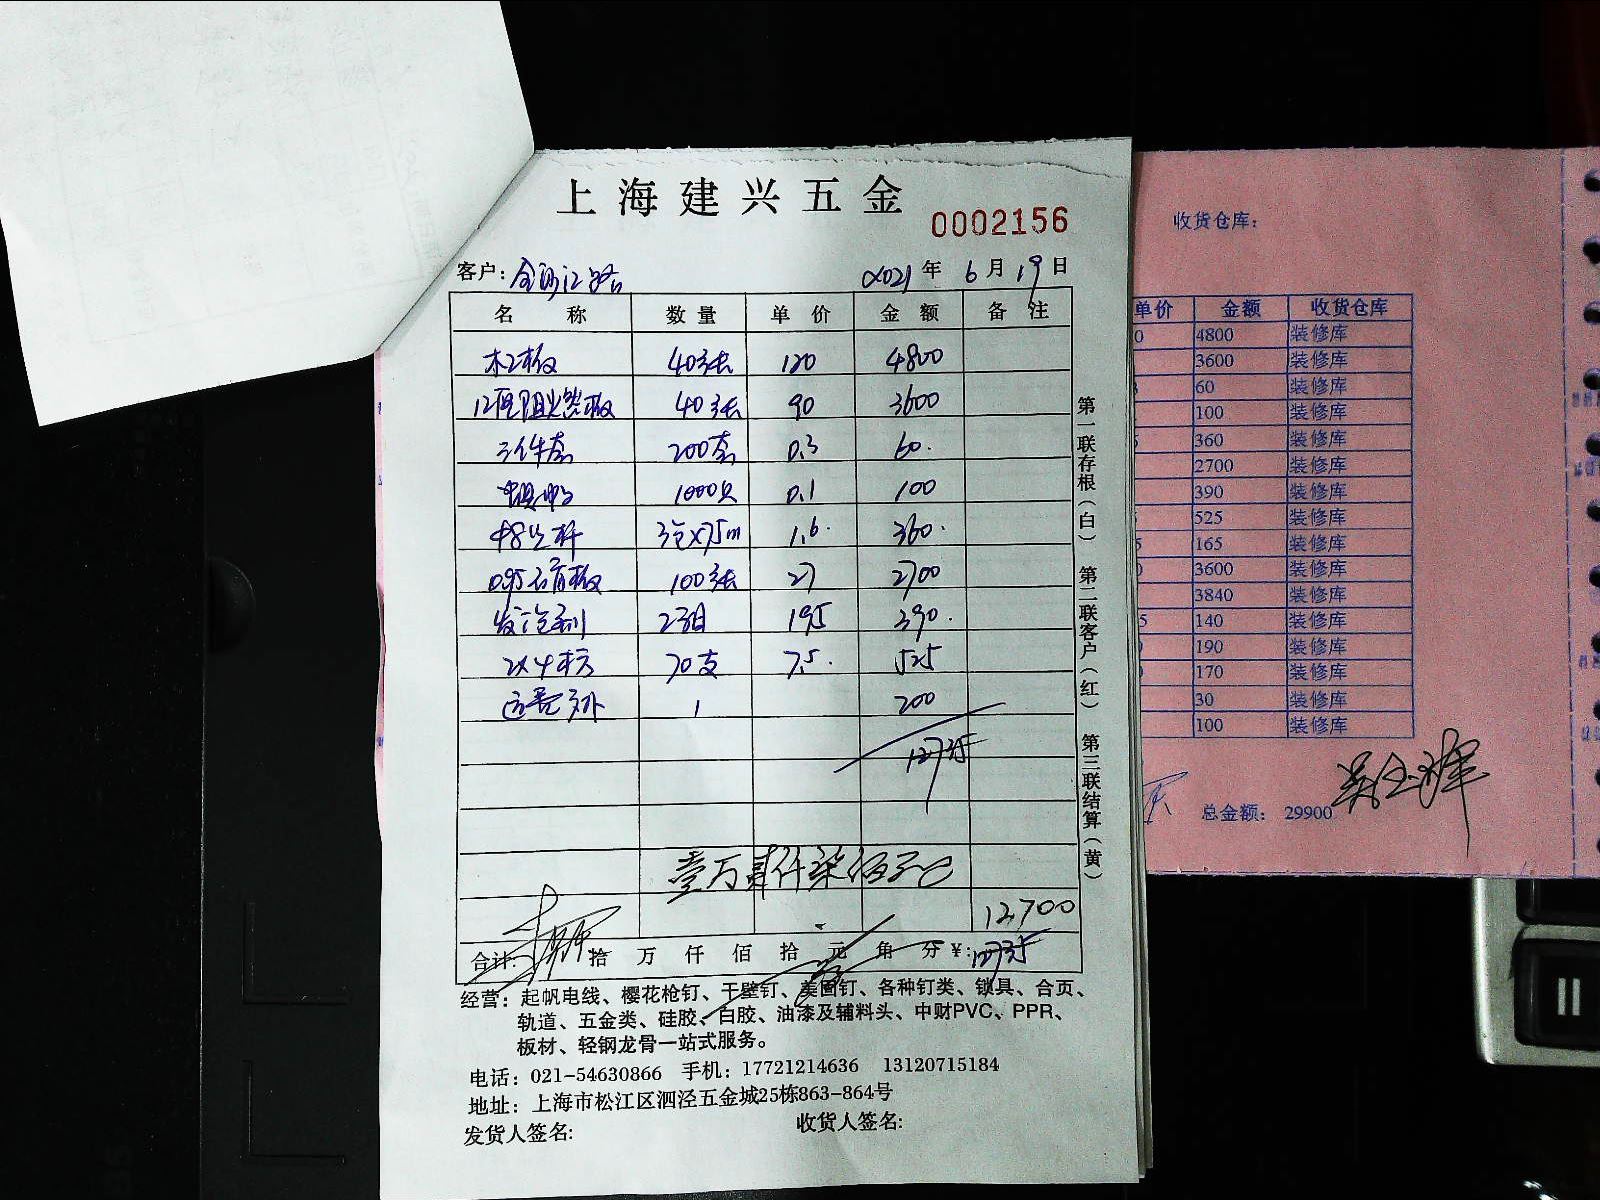 上海建兴五金
0002156
客户：金沙江路 2021年6月19日
名称 数量 单价 金额 备注
木工板 40张 120 4800
12厘阻燃板 40张 90 3600
三件套 200套 0.3 60.
1000只 0.1 100
φ8丝杆 3包×75m 1.6. 360.
095石膏板 100张 27 2700
发泡剂 2组 195 390.
2×4木方 70支 7.5. 525
运费另外 1 200
12735
壹万贰仟柒佰元
12700
合计: 拾万仟佰拾元角分¥:12735
第一联存根（白） 第二联客户（红） 第三联结算（黄）
经营：起帆电线、樱花枪钉、干壁钉、美固钉、各种钉类、锁具、合页、
轨道、五金类、硅胶、白胶、油漆及辅料头、中财PVC、PPR、
板材、轻钢龙骨一站式服务。
电话：021-54630866 手机：17721214636 13120715184
地址：上海市松江区泗泾五金城25栋863-864号
发货人签名: 收货人签名:
收货仓库:
单价 金额 收货仓库
0 4800 装修库
3600 装修库
60 装修库
100 装修库
5 360 装修库
2700 装修库
390 装修库
5 525 装修库
5 165 装修库
0 3600 装修库
3840 装修库
5 140 装修库
190 装修库
170 装修库
30 装修库
100 装修库
总金额： 29900